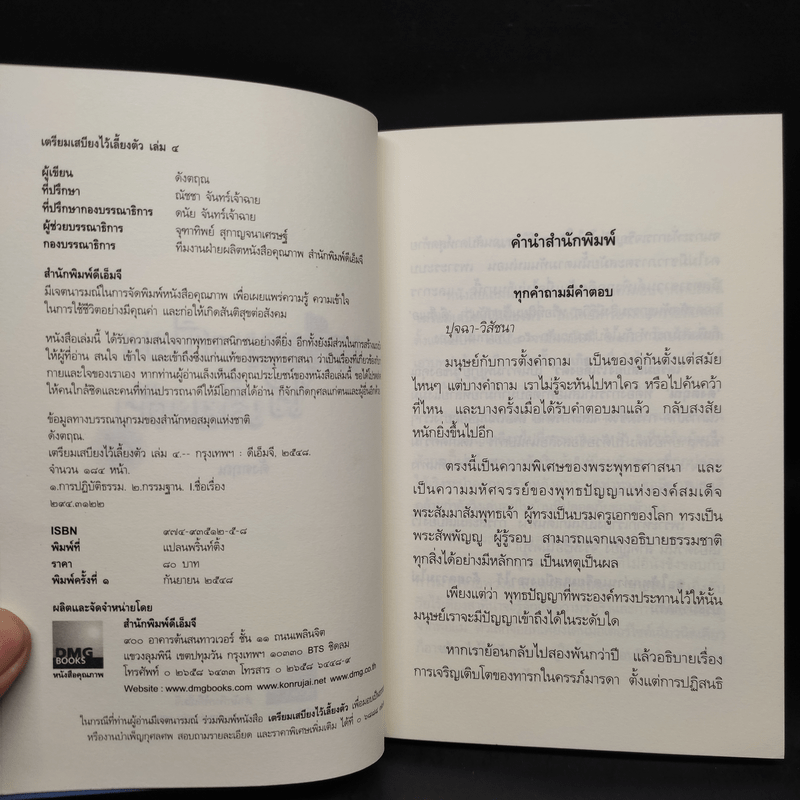 เตรียมเสบียงไว้เลี้ยงตัว เล่ม ๔
ผู้เขียน ดังตฤณ
ที่ปรึกษา ณัชชา จันทร์เจ้าฉาย
ที่ปรึกษากองบรรณาธิการ ดนัย จันทร์เจ้าฉาย
ผู้ช่วยบรรณาธิการ จุฑาทิพย์ สุกาญจนาเศรษฐ์
กองบรรณาธิการ ทีมงานฝ่ายผลิตหนังสือคุณภาพ สำนักพิมพ์ดีเอ็มจี
สำนักพิมพ์ดีเอ็มจี
มีเจตนารมณ์ในการจัดพิมพ์หนังสือคุณภาพ เพื่อเผยแพร่ความรู้ ความเข้าใจ
ในการใช้ชีวิตอย่างมีคุณค่า และก่อให้เกิดสันติสุขต่อสังคม
หนังสือเล่มนี้ ได้รับความสนใจจากพุทธศาสนิกชนอย่างดียิ่ง อีกทั้งยังมีส่วนในการสร้าง
ให้ผู้ที่อ่าน สนใจ เข้าใจ และเข้าถึงซึ่งแก่นแท้ของพระพุทธศาสนา ว่าเป็นเรื่องที่เกี่ยวข้องกับ
กายและใจของเราเอง หากท่านผู้อ่านเล็งเห็นถึงคุณประโยชน์ของหนังสือเล่มนี้ ขอได้โปรด
ให้คนใกล้ชิดและคนที่ท่านปรารถนาดีให้มีโอกาสได้อ่าน ก็จักเกิดกุศลแก่ตนและผู้อื่น
ข้อมูลทางบรรณานุกรมของสำนักหอสมุดแห่งชาติ
ดังตฤณ.
เตรียมเสบียงไว้เลี้ยงตัว เล่ม ๔.-- กรุงเทพฯ : ดีเอ็มจี, ๒๕๔๘.
จำนวน ๑๘๔ หน้า.
๑.การปฏิบัติธรรม. ๒.กรรมฐาน. I.ชื่อเรื่อง
๒๙๔.๓๑๒๒
ISBN ๙๗๔-๙๓๕๑๒-๕-๘
พิมพ์ที่ แปลนพริ้นท์ติ้ง
ราคา ๘๐ บาท
พิมพ์ครั้งที่ ๑ กันยายน ๒๕๔๘
ผลิตและจัดจำหน่ายโดย
สำนักพิมพ์ดีเอ็มจี
๙๐๐ อาคารต้นสนทาวเวอร์ ชั้น ๑๑ ถนนเพลินจิต
แขวงลุมพินี เขตปทุมวัน กรุงเทพฯ ๑๐๓๓๐ BTS ชิดลม
โทรศัพท์ ๐ ๒๖๕๘ ๖๔๓๓ โทรสาร ๐ ๒๖๕๘ ๖๔๔๘-๙
Website : www.dmgbooks.com www.konrujai.net www.dmg.co.th
DMG
BOOKS
หนังสือคุณภาพ
ในกรณีที่ท่านผู้อ่านมีเจตนารมณ์ ร่วมพิมพ์หนังสือ เตรียมเสบียงไว้เลี้ยงตัว
หรืองานบำเพ็ญกุศลศพ สอบถามรายละเอียด และราคาพิเศษเพิ่มเติม ได้ที่
คำนำสำนักพิมพ์
ทุกคำถามมีคำตอบ
ปุจฉา-วิสัชนา
มนุษย์กับการตั้งคำถาม เป็นของคู่กันตั้งแต่สมัย
ไหนๆ แต่บางคำถาม เราไม่รู้จะหันไปหาใคร หรือไปค้นคว้า
ที่ไหน และบางครั้งเมื่อได้รับคำตอบมาแล้ว กลับสงสัย
หนักยิ่งขึ้นไปอีก
ตรงนี้เป็นความพิเศษของพระพุทธศาสนา และ
เป็นความมหัศจรรย์ของพุทธปัญญาแห่งองค์สมเด็จ
พระสัมมาสัมพุทธเจ้า ผู้ทรงเป็นบรมครูเอกของโลก ทรงเป็น
พระสัพพัญญู ผู้รู้รอบ สามารถแจกแจงอธิบายธรรมชาติ
ทุกสิ่งได้อย่างมีหลักการ เป็นเหตุเป็นผล
เพียงแต่ว่า พุทธปัญญาที่พระองค์ทรงประทานไว้ให้นั้น
มนุษย์เราจะมีปัญญาเข้าถึงได้ในระดับใด
หากเราย้อนกลับไปสองพันกว่าปี แล้วอธิบายเรื่อง
การเจริญเติบโตของทารกในครรภ์มารดา ตั้งแต่การปฏิสนธิ